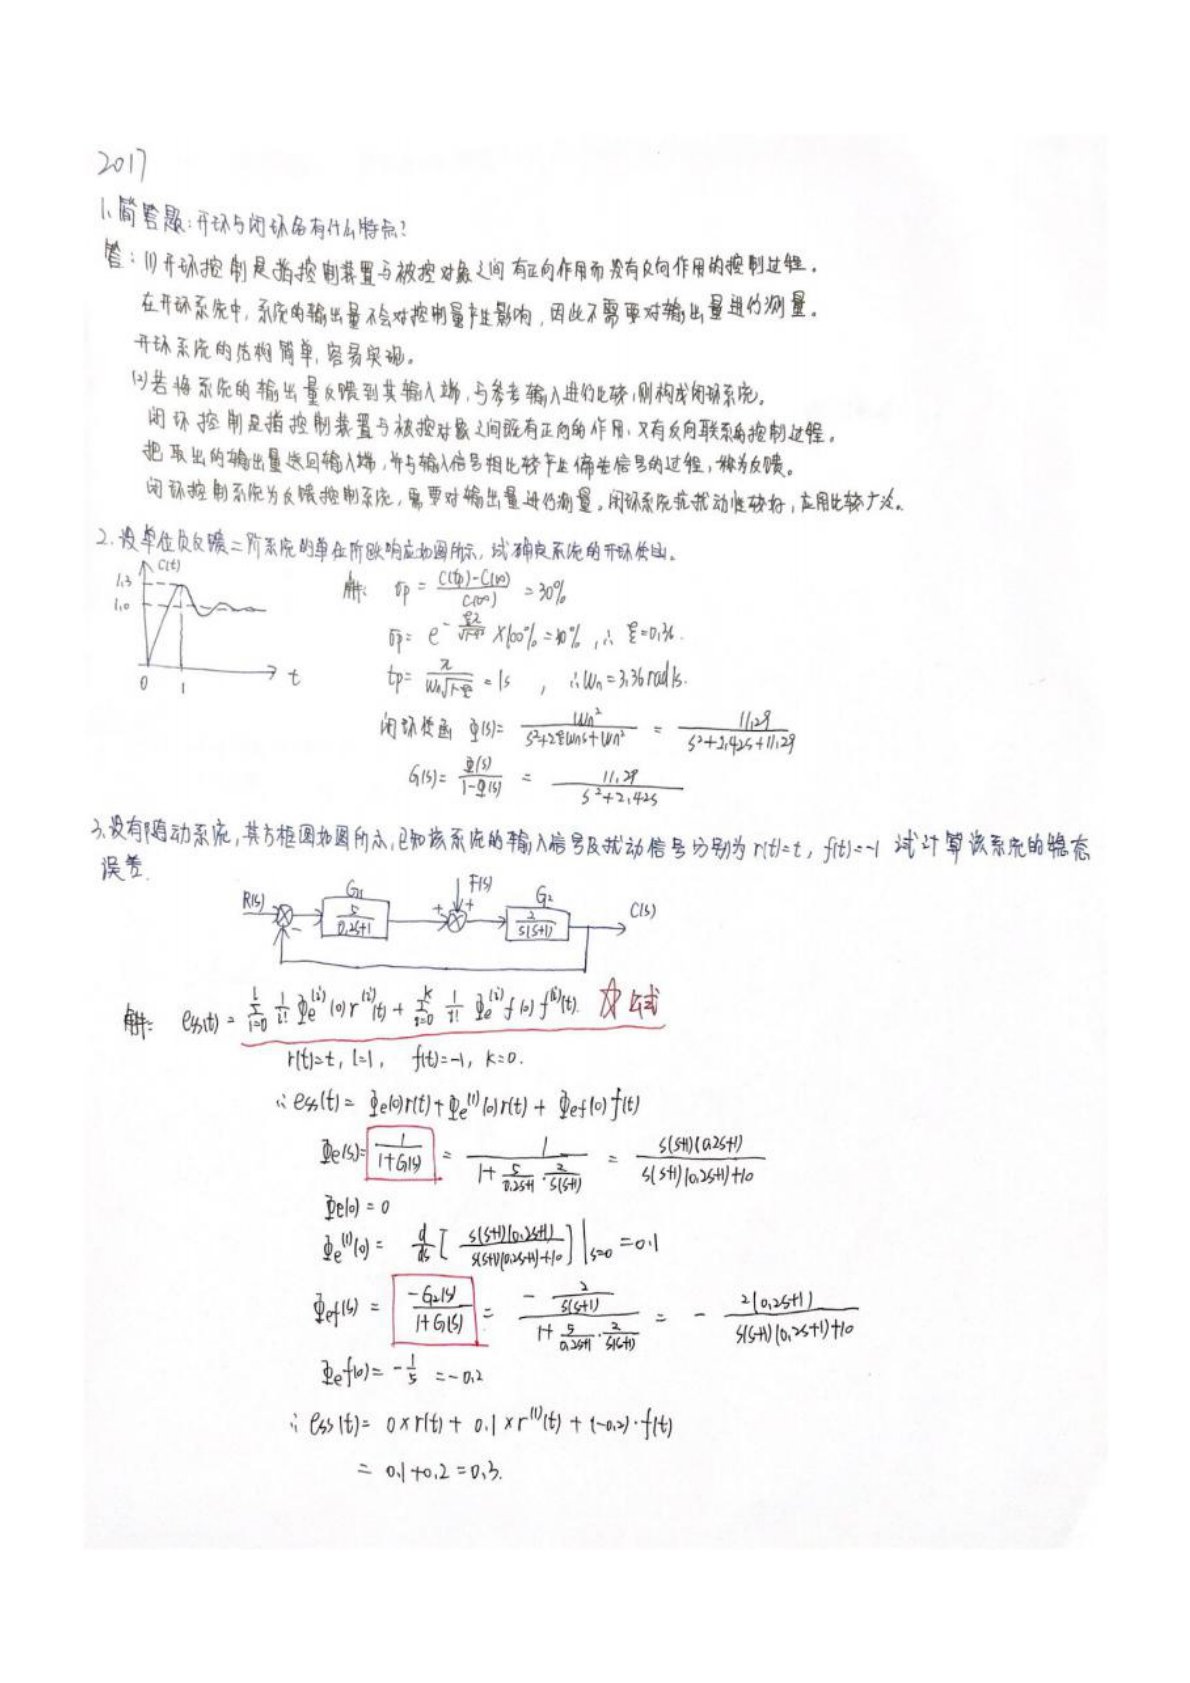 2017
1、简答题：开环与闭环各有什么特点？
答：(1)开环控制是指控制装置与被控对象之间有正向作用而没有反向作用的控制过程。
在开环系统中，系统的输出量不会对控制量产生影响，因此不需要对输出量进行测量。
开环系统的结构简单，容易实现。
(2)若将系统的输出量反馈到其输入端，与参考输入进行比较，则构成闭环系统。
闭环控制是指控制装置与被控对象之间既有正向的作用，又有反向联系的控制过程。
把取出的输出量送回输入端，并与输入信号相比较产生偏差信号的过程，称为反馈。
闭环控制系统为反馈控制系统，需要对输出量进行测量。闭环系统抗扰动性较好，应用比较广泛。
2、设单位负反馈二阶系统的单位阶跃响应如图所示，试确定系统的开环传函。
C(t) 1.3 1.0 0 1 t
解: σp = (C(tp)-C(∞))/C(∞) = 30%
σp = e^(-ξπ/√(1-ξ²)) ×100% = 30%, ∴ ξ=0.36.
tp = π/(Wn√(1-ξ²)) = 1s , ∴ Wn = 3.36 rad/s.
闭环传函 Φ(s) = Wn²/(s²+2ξWns+Wn²) = 11.29/(s²+2.42s+11.29)
G(s) = Φ(s)/(1-Φ(s)) = 11.29/(s²+2.42s)
3、设有随动系统，其方框图如图所示，已知该系统的输入信号及扰动信号分别为 r(t)=t, f(t)=-1 试计算该系统的稳态
误差.
R(s) - G1 5/(0.2s+1) + F(s) + G2 2/(s(s+1)) C(s)
解: ess(t) = Σ(i=0→l) 1/i! Φe^(i)(0) r^(i)(t) + Σ(i=0→k) 1/i! Φe^(i)f(0) f^(i)(t). ☆公式
r(t)=t, l=1, f(t)=-1, k=0.
∴ ess(t) = Φe(0)r(t) + Φe^(1)(0)r(t) + Φef(0)f(t)
Φe(s) = 1/(1+G(s)) = 1/(1+5/(0.2s+1)·2/(s(s+1))) = s(s+1)(0.2s+1)/(s(s+1)(0.2s+1)+10)
Φe(0) = 0
Φe^(1)(0) = d/ds [s(s+1)(0.2s+1)/(s(s+1)(0.2s+1)+10)]|s=0 = 0.1
Φef(s) = -G2(s)/(1+G(s)) = -(2/(s(s+1)))/(1+5/(0.2s+1)·2/(s(s+1))) = -2(0.2s+1)/(s(s+1)(0.2s+1)+10)
Φef(0) = -1/5 = -0.2
∴ ess(t) = 0×r(t) + 0.1×r^(1)(t) + (-0.2)·f(t)
= 0.1+0.2=0.3.